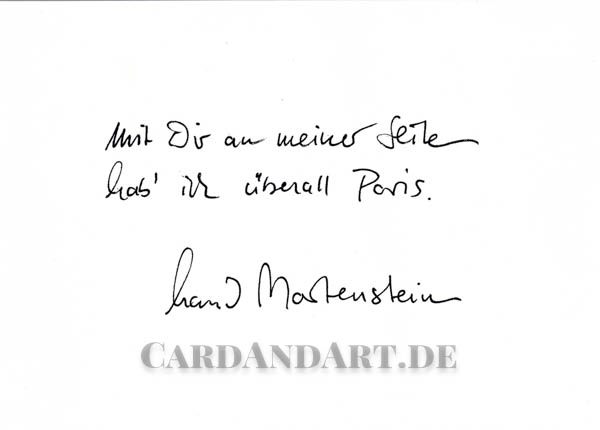 Mit Dir an meiner Seite
hab' ich überall Paris.
Martenstein
CARDANDART.DE